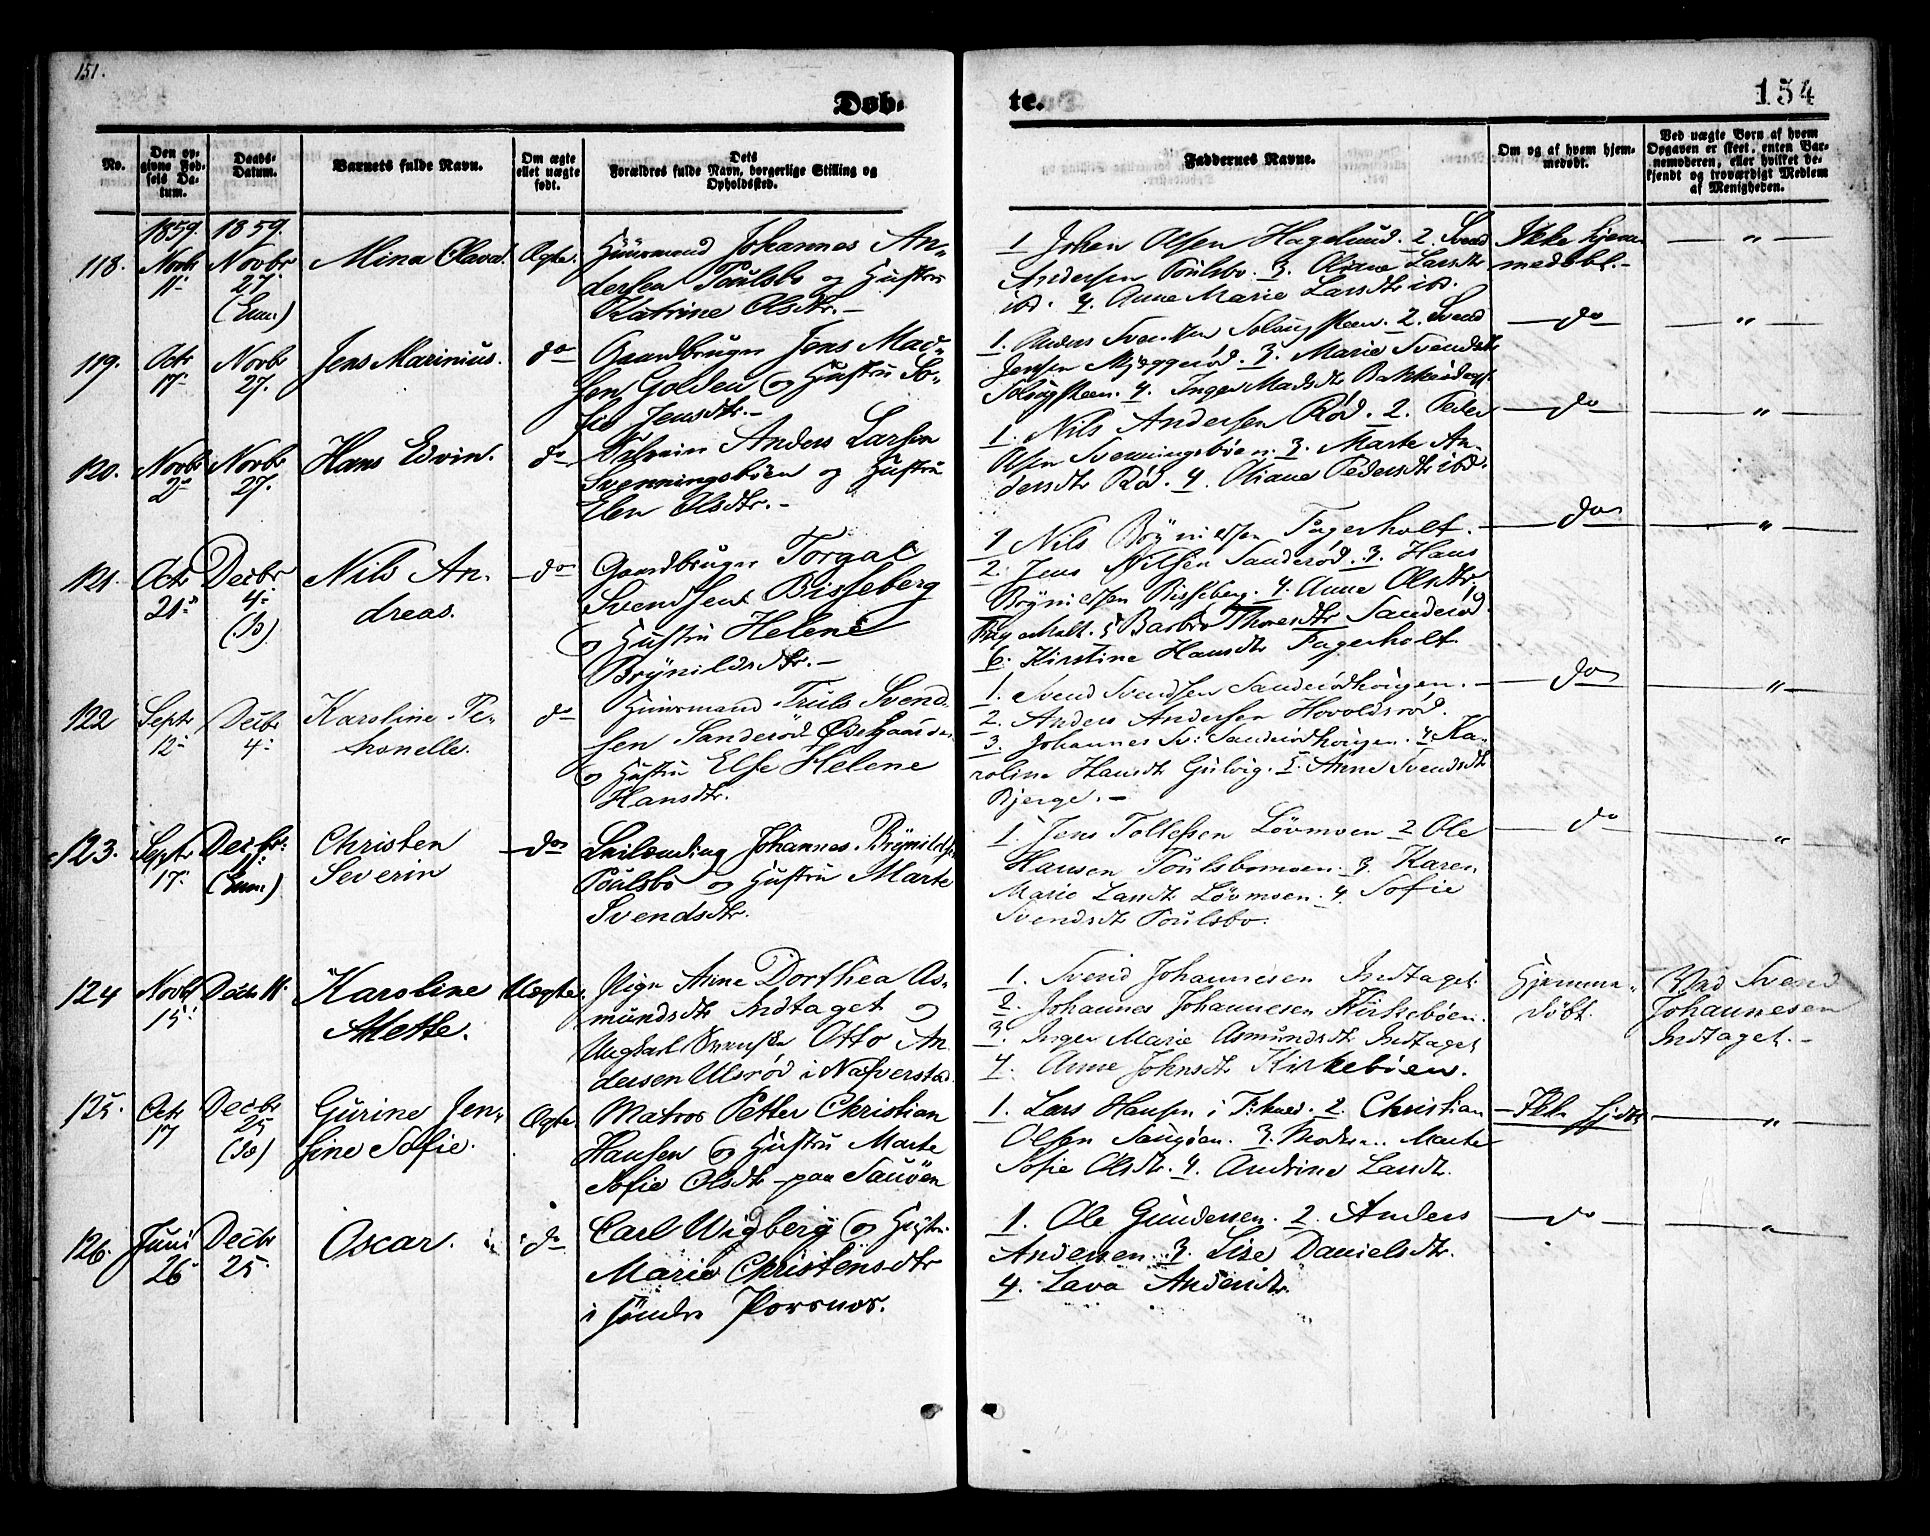 151.
154
Døb-
te.
No.
Den op-
givne Fød-
sels Da-
tum.
Daabs-
Datum.
Barnets fulde Navn.
Om ægte
ellet uægte
født.
Dets
Forældres fulde Navn, borgerlige Stilling og
Opholdssted.
Faddernes Navne.
Om og af hvem hjem-
medøbt.
Ved uægte Børn af hvem
Opgaven er skeet, enten Bar-
nemoderen, eller hvilket be-
kjendt og troværdigt Medlem
af Menigheden.
1859. 1859.
118. Novbr 11. Novbr 27. (Enn.)
Mina Olava. Ægte.
Huusmand Johannes An-
dersen Poulsbo og Hustru
Katrine Olsdtr. -
1. Johan Olsen Hagelund. 2. Svend
Andersen Poulsbo. 3. Oliane Larsdtr
ibd. 4. Anne Marie Larsdtr ibd.
Ikke hjem-
medøbt. -
"
119. Octr 17. Novbr 27.
Jens Marinius. do
Gaardbruger Jens Mad-
sen Golden og Hustru So-
fie Jensdtr. -
1. Anders Svensen Solvigsteen. 2. Svend
Jensen Myggerød. 3. Marie Svendsdtr
Solvigsteen. 4. Inger Madsdtr
do
"
120. Novbr 2. Novbr 27.
Hans Edvin. do
Anders Larsen
Svenningsbøen og Hustru
Elen Olsdtr. -
1. Nils Andersen Rød. 2. Peder
Olsen Svenningsbøen. 3. Marte An-
dersdtr Rød. 4. Oliane Pedersdtr ibd.
do
"
121. Octr 21. Decbr 4. (Do)
Nils An-
dreas. do
Gaardbruger Torgal
Svendsen Bisseberg
og Hustru Helene
Brynildsdtr. -
1 Nils Brynildsen Fagerholt.
2. Jens Nilsen Sanderød. 3. Hans
Brynildsen Bisseberg. 4. Anne Olsdtr
Fagerholt. 5 Barbro Thoresdtr Sanderød.
6. Kirstine Hansdtr Fagerholt.
do
"
122 Septr 12. Decbr 4.
Karoline Pe-
tronelle. do
Huusmand Truls Svend-
sen Sanderød Ødegaarden
og Hustru Else Helene
Hansdtr.
1. Svend Svendsen Sanderødhøigen.
2. Anders Andersen Hovoldsrød.
3. Johannes Sv: Sanderødhøigen. 4 Ka-
roline Hansdtr Gulvig. 5. Anne Svendsdtr
Bjerge. -
do
"
123. Septr 17. Decbr: 11. (Enn.)
Christen
Severin do
Leilænding Johannes Brynilds.
Poulsbo og Hustru Marte
Svendsdtr.
1. Jens Tollefsen Løvmoen 2 Ole
Hansen Poulsbomoen. 3. Karen
Marie Larsdtr Løvmoen. 4 Sofie
Svendsdtr Poulsbo.
do
"
124 Novbr 15. Decbr 11.
Karoline
Alette. Uægte.
Pige Anne Dorthea As-
mundsdtr Indtaget og
Ungkarl Svenske Otto An-
dersen Ulsrød i Nafverstad.
1. Svend Johannesen Indtaget.
2. Johannes Johannesen Kirkebøen.
3. Inger Marie Asmundsdtr Indtaget
4. Anne Johnsdtr Kirkebøen.
Hjemme-
døbt.
Ved Svend
Johannesen
Indtaget. -
125. Octr 17 Decbr 25 (Do)
Gurine Jen-
sine Sofie. Ægte.
Matros Petter Christian
Hansen og Hustru Marte
Sofie Olsdtr paa Sauøen
1. Lars Hansen i 2. Christian
Olsen Saugøen. 3. Moderen Marte
Sofie Olsdtr. 4. Andrine Larsdtr.
Ikke hjdbt
"
126. Juni 26 Decbr 25.
Oscar. do
Carl Wigberg og Hustr.
Marie Christensdtr
i søndre Porsnes.
1. Ole Gundersen. 2. Anders
Andersen. 3. Lise Danielsdtr.
4. Lava Andersdtr.
do
"